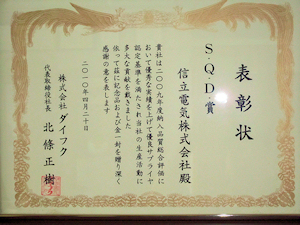 表彰状
S・Q・D賞
信立電気株式会社殿
貴社は二〇〇九年度納入品質総合評価に
おいて優秀な実績を上げて優良サプライヤ
認定基準を満たされ当社の生産活動に
多大な貢献を戴きました
依って茲に記念品および金一封を贈り深く
感謝の意を表します
二〇一〇年四月二十日
株式会社ダイフク
代表取締役社長 北條正樹